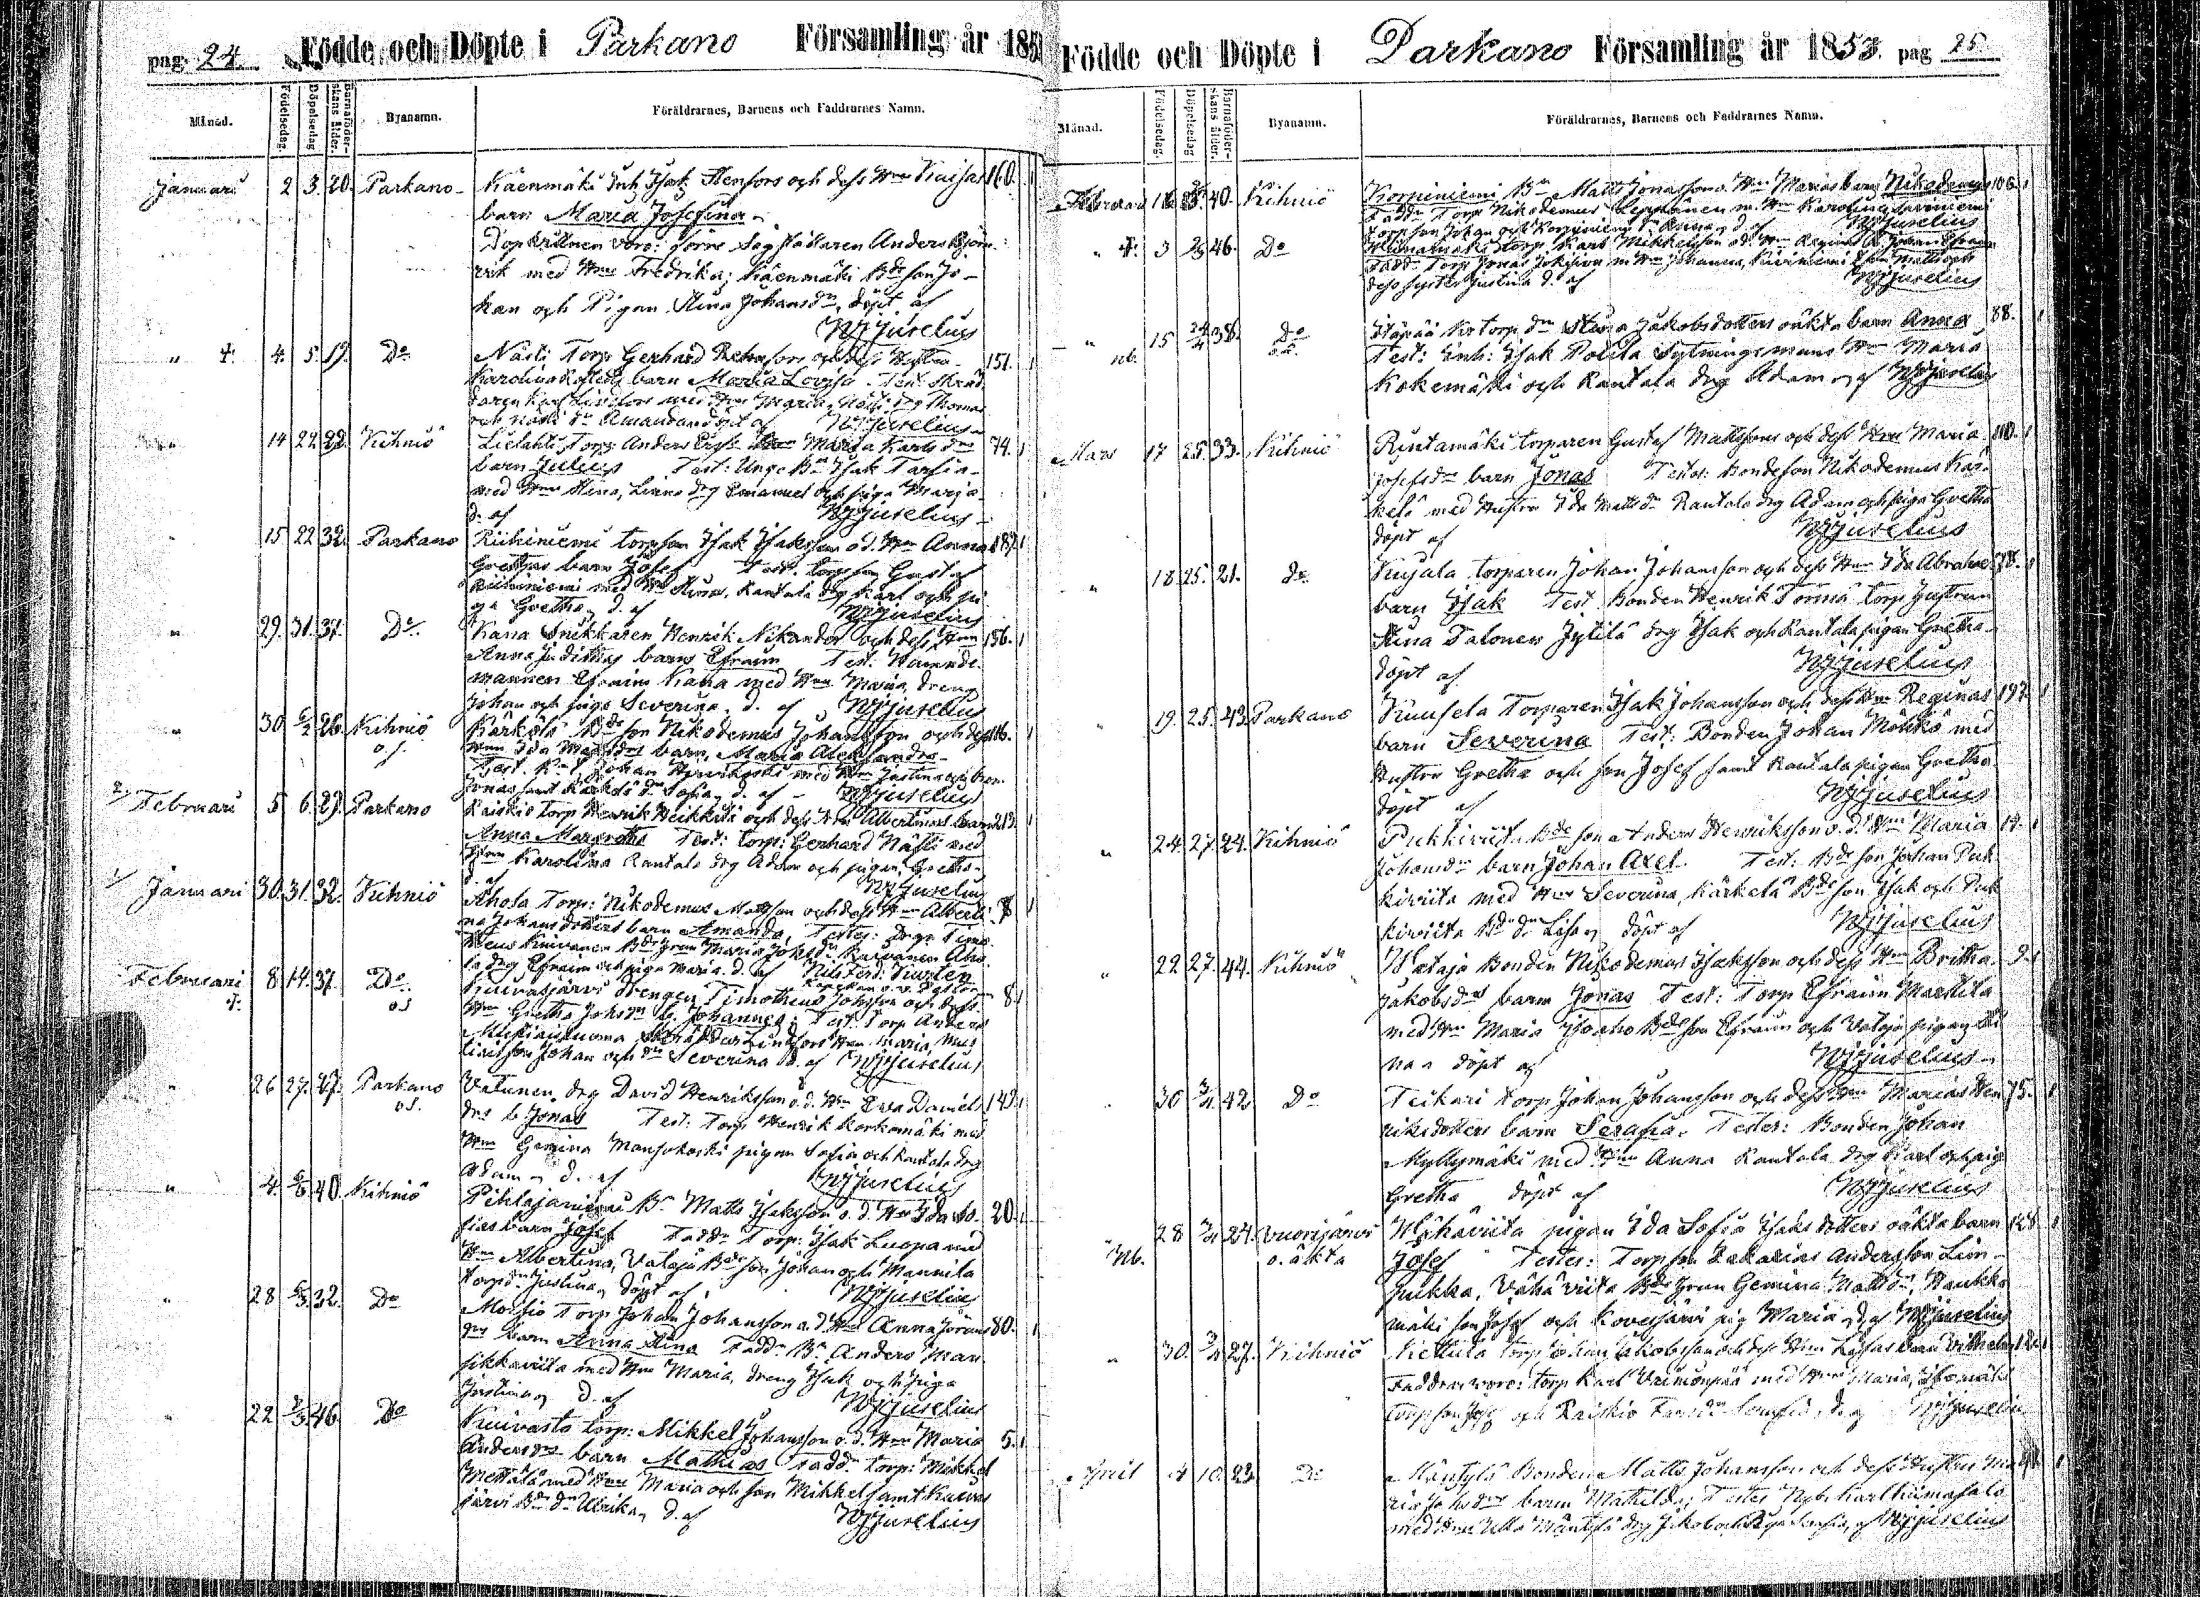 pag. 24. Födde och Döpte i Parkano Församling år 185
Månad. Födelsedag. Döpelsedag Barnaföder-skans ålder. Byanamn. Föräldrarnes, Barnens och Faddrarnes Namn.
Januari 2 3. 20. Parkano Käenmäki Inh. Isak Stenfors och dess Hru Kaisas 160.
barn Maria Josefina
Dopvittnen voro: förne Sågställaren Anders Björk-
med Hru Fredrika; Käenmäki Bde son Jo-
han och Pigan Stina Johansdr, döpt af
Wjuselius
" 4. 5. 19. Do Näsi Torp. Gerhard och dess Hustru 151.
Karolina barn Maria Lovisa. Test. Skräd-
daren Karl med Hru Maria, Näsi drg Thomas
och Näsi dr Amanda döpt af Wjuselius
" 14 22 22 Kihniö Lielahti Torp. Anders Hru Maria Karls dr 74.
barn Julius Test: Unge Bn Isak Tarsia
med Hru Stina, drg Emanuel och piga Marja
d. af Wjuselius
15 22 32. Parkano Riihiniemi torpson Isak Isaksson o. d. Hru Anna 187.
Grethas barn Josef Test. torpson Gustaf
Riihiniemi med Hru Stina, Rantala drg Karl och pi-
ga Gretha, d. af Wjuselius
" 29. 31. 37. Do Kana Snikkaren Henrik Nikander och dess Hru 156.
Anna Judithas barn Efraim Test. Nämnde-
mannen Efraim Kana med Hru Maria, dreng
Johan och piga Severina, d. af Wjuselius
" 30. 6/2 26. Kihniö Kärkelä Bde son Nikodemus Johansson och dess 16.
o. s. Hru Ida Matsdrs barn, Maria Alexandra
Test. Johan med Hru Justina och bror
Jonas samt Kärkelä dr Sofia, d. af Wjuselius
Februari 5 6. 27. Parkano Raiskio torp Henrik Heikkilä och dess Hru Albertinas barn 213.
Anna Margretha Test: torp: Gerhard Näsi med
Hru Karolina Rantala drg Adam och pigan Gretha
d. af Wjuselius
Januari 30. 31. 32. Kihniö Ahola Torp: Nikodemus Mattsson och dess Hru Alberti-
na Johansdotters barn Amanda, Testes: Timo-
theus Bde Maria Johsdr Aho-
la drg Efraim och piga Maria. d. af Nils Ferd. Tursten
Februari 8. 14. 37. Do Kuivasjärvi drengen Timotheus Johsson och dess 8.
o. s. Hru Gretha Johsdr b. Johannes, Test. Torp Anders
Lindfors Hru Maria,
son Johan och dr Severina d. af Wjuselius
" 26 27. 47. Parkano Vatunen drg David Henriksson o. d. Hru Eva Daniels 149.
o. s. drs b. Jonas Test: Torp Henrik Korkomäki med
Hru Gemina Mansokoski pigan Sofia och Rantala drg
Adam, d. af Wjuselius
" 4. 40. Kihniö Pihlajaniemi Bn Matts Isaksson o. d. Hru Ida So- 20.
fias barn Josef Faddr Torp: Isak Luopa med
Hru Albertina, Vataja Bde son Johan och Mannila
torpdr Justina, döpt af Wjuselius
" 28 6/3 32. Do Moisio Torp Johan Johansson o. d. Hru Anna Jörans 80.
drs barn Anna Stina Faddr Bn Anders Man-
sikkaviita med Hru Maria, dreng Isak och piga
Justina, d. af Wjuselius
" 22 46 Do Kuivasto torp: Mikkel Johansson o. d. Hru Maria 5.
Andersdrs barn Mathias Fadd. torp: Mikkel
Mettälä med Hru Maria och son Mikkel samt Kuivas-
järvi Bde dr Ulrika, d. af Wjuselius
Födde och Döpte i Parkano Församling år 1853. pag 25
Månad. Födelsedag. Döpelsedag Barnaföder-skans ålder. Byanamn. Föräldrarnes, Barnens och Faddrarnes Namn.
Februari 40. Kihniö Korpiniemi Bn Matts Jonasson o. Hru Marias barn Nikodemus 106.
Faddr Torp Nikodemus Leppänen m. Hru Karolina
torpson Johan och Korpiniemi d. af Wjuselius
" 3 46. Do torp Karl Mikkelsson o d. Hru Reginas b. Johan Efraim
Faddr Torp Jonas Jokisivu m Hru Johanna, son Matts och
dess syster Justina d. af Wjuselius
" nb. 15 24/4 38. Do o.ä. torp. dr Stina Jakobsdotters oäkta barn Anna 88.
Test: Inh: Isak Sytningsmans Hru Maria
Kokemäki och Rantala drg Adam, af Wjuselius
Mars 17 25. 33. Kihniö Rintamäki torparen Gustaf Mattsson och dess Hru Maria 110.
Josefsdr barn Jonas Testes: Bondeson Nikodemus Kär-
kelä med Hustru Ida Mattsdr Rantala drg Adam och piga Gretha
döpt af Wjuselius
" 18 25. 21. do Kujala torparen Johan Johansson och dess Hru Ida Abrahams 78.
barn Isak Test. Bonden Henrik Tormä torp hustrun
Stina Talonen Jytilä drg Isak och Rantala pigan Gretha
döpt af Wjuselius
" 19. 25. 43. Parkano Kuusela Torparen Isak Johansson och dess Hru Reginas 197.
barn Severina Test: Bonden Johan med
Hustru Gretha och son Josef samt Rantala pigan Gretha
döpt af Wjuselius
" 24 27. 24. Kihniö Pukkiviita Bde son Anders Henriksson o. d. Hru Maria 14.
Johansdr barn Johan Axel. Test: Bde son Johan Puk-
kiviita med Hru Severina, Kärkelä Bde son Isak och Puk-
kiviita Bde dr Lisa, döpt af Wjuselius
" 22 27. 44. Kihniö Wataja Bonden Nikodemus Isaksson och dess Hru Britta 9.
Jakobsdrs barn Jonas Test: Torp Efraim Marttila
med Hru Maria Bde son Efraim och Vataja pigan Sti-
na, döpt af Wjuselius
" 30 3/4 42 Do Teikari torp Johan Johansson och dess Hru Marias Hen- 75.
riksdotters barn Serafia. Testes: Bonden Johan
Myllymäki med Hru Anna Rantala drg Karl och pig
Gretha döpt af Wjuselius
" Nb. 28 24. Vuorijärvi o. äkta Wähäviita pigan Ida Sofia Isaksdotters oäkta barn 128
Josef Testes: Torpson Zakarias Andersson Lin-
pukka, Vähäviita Bde frun Gemina Mattsdr, Haukka-
mäki son Josef och Kovesjärvi pig Maria, d. af Wjuselius
" 30. 3/4 27. Kihniö Kettula torp Johan Jakobsson och dess Hru Lisas barn Vilhelm
Faddrar voro: torp Karl Vainionpää med Hru Maria,
torpson och Raiskio d. af Wjuselius
April 4 10. 23 Do Mäntylä Bonden Matts Johansson och dess Hustru Ma-
rias Johsdrs barn Mathilda; Testes Nyb. Karl
med Hru Ulla Mäntylä drg Jakob och piga af Wjuselius